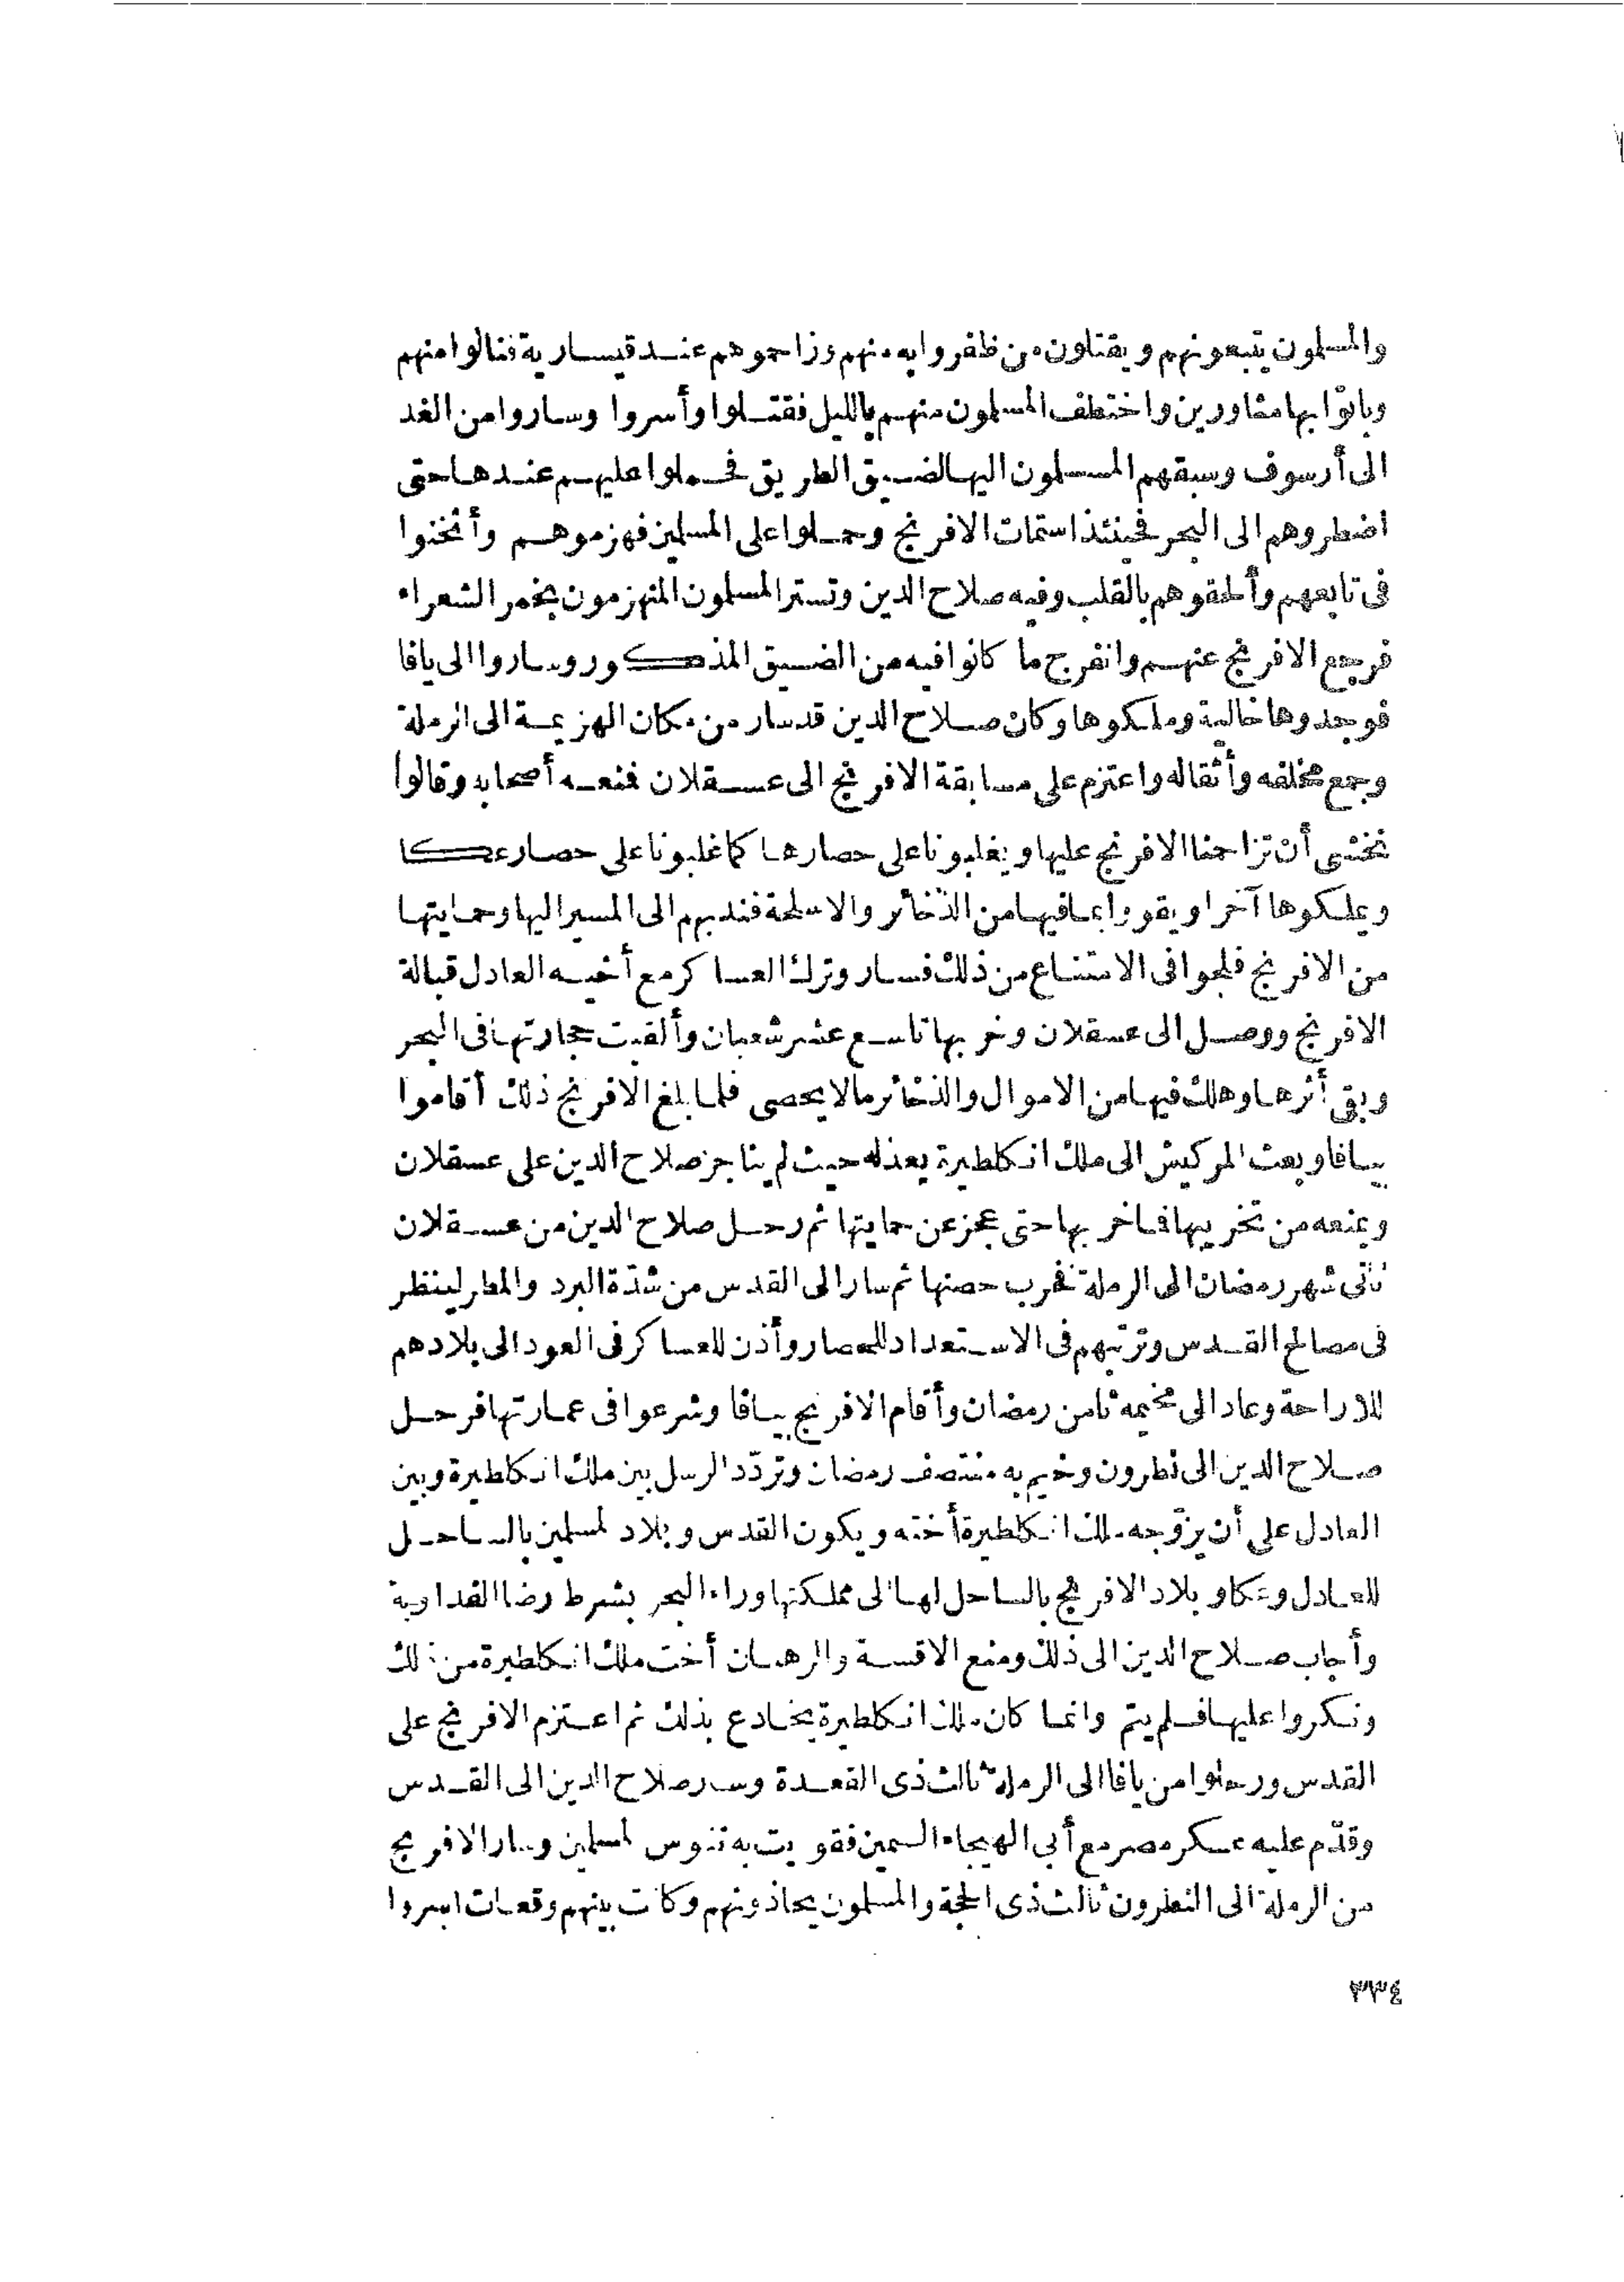 والمسلمون يتبعونهم ويقتلون من ظفروا به منهم وزاحموهم عند قيسارية فنالوا منهم
وباتوا بها مثاورين واختطف المسلمون منهم بالليل فقتلوا وأسروا وساروا من الغد
الى أرسوف وسبقهم المسلمون اليها لضيق الطريق فحملوا عليهم عندها حتى
اضطروهم الى البحر فحينئذ استمات الافرنج وحملوا على المسلمين فهزموهم وأثخنوا
فى تابعهم وألحقوهم بالقلب وفيه صلاح الدين وتستر المسلمون المنهزمون بخمر الشعراء
فرجع الافرنج عنهم وانفرج ما كانوا فيه من الضيق المذكور وساروا الى يافا
فوجدوها خالية وملكوها وكان صلاح الدين قد سار من مكان الهزيمة الى الرملة
وجمع مخلفه وأثقاله واعتزم على مسابقة الافرنج الى عسقلان فمنعه أصحابه وقالوا
نخشى أن تزاحمنا الافرنج عليها ويغلبونا على حصارها كما غلبونا على حصار عكا
ويملكوها آخرا ويقووا بما فيها من الذخائر والاسلحة فندبهم الى المسير اليها وحمايتها
من الافرنج فلجوا فى الامتناع من ذلك فسار وترك العساكر مع أخيه العادل قبالة
الافرنج ووصل الى عسقلان وخربها تاسع عشر شعبان وألقيت حجارتها فى البحر
وبقى أثرها وهلك فيها من الاموال والذخائر مالا يحصى فلما بلغ الافرنج ذلك أقاموا
بيافا وبعث المركيش الى ملك انكلطيرة يعذله حيث لم يناجز صلاح الدين على عسقلان
ويمنعه من تخريبها فما خربها حتى عجز عن حمايتها ثم رحل صلاح الدين من عسقلان
ثانى شهر رمضان الى الرملة فخرب حصنها ثم سار الى القدس من شدّة البرد والمطر لينظر
فى مصالح القدس وترتبهم فى الاستعداد للحصار وأذن للعساكر فى العود الى بلادهم
للاراحة وعاد الى مخيمه ثامن رمضان وأقام الافرنج بيافا وشرعوا فى عمارتها فرحل
صلاح الدين الى نطرون وخيم به منتصف رمضان وتردّد الرسل بين ملك انكلطيرة وبين
العادل على أن يزوّجه ملك انكلطيرة أخته ويكون القدس وبلاد المسلمين بالساحل
للعادل وعكا وبلاد الافرنج بالساحل لها الى مملكتها وراء البحر بشرط رضا الفداوية
وأجاب صلاح الدين الى ذلك ومنع الاقسة والرهبان أخت ملك انكلطيرة من ذلك
ونكروا عليها فلم يتم وانما كان ملك انكلطيرة يخادع بذلك ثم اعتزم الافرنج على
القدس ورحلوا من يافا الى الرملة ثالث ذى القعدة وسار صلاح الدين الى القدس
وقدّم عليه عسكر مصر مع أبى الهيجاء السمين فقويت به نفوس المسلمين وسار الافرنج
من الرملة الى النطرون ثالث ذى الحجة والمسلمون يحاذونهم وكانت بينهم وقعات اسروا
٣٣٤